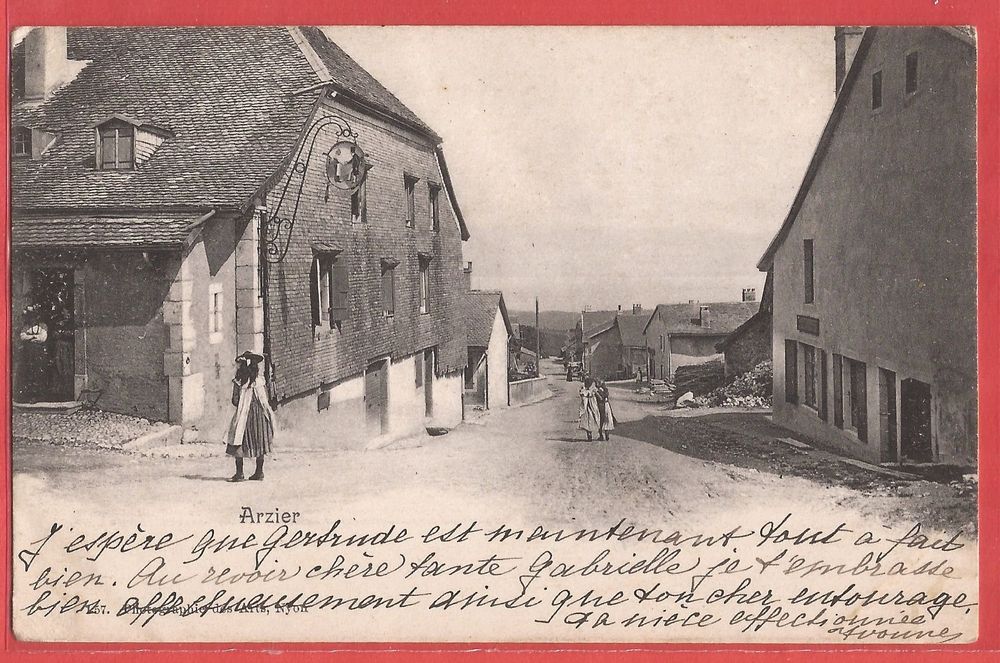 Arzier
J'espère que Gertrude est maintenant tout à fait
bien. Au revoir chère tante Gabrielle je t'embrasse
bien affectueusement ainsi que ton cher entourage.
157. Photographie des Arts, Nyon
Ta nièce affectionnée
Yvonne